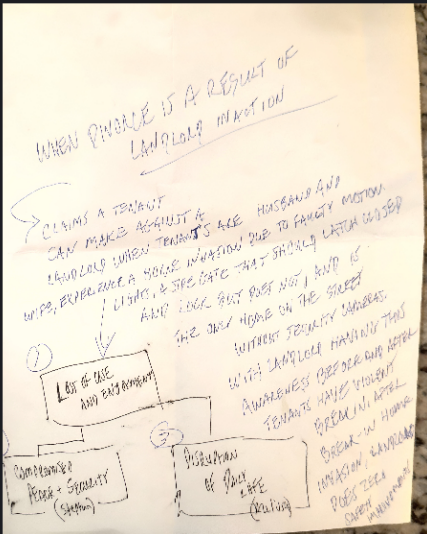 WHEN DIVORCE IS A RESULT OF
LANDLORD INACTION
CLAIMS A TENANT
CAN MAKE AGAINST A
LANDLORD WHEN TENANTS ARE HUSBAND AND
WIFE, EXPERIENCE A HOME INVATION DUE TO FAULTY MOTION
LIGHTS, A SIDE GATE THAT SHOULD LATCH CLOSED
AND LOCK BUT DOES NOT, AND IS
THE ONLY HOME ON THE STREET
WITHOUT SECURITY CAMERAS.
WITH LANDLORD HAVING THIS
AWARENESS BEFORE AND AFTER
TENANTS HAVE VIOLENT
BREAK IN, AFTER
BREAK IN HOME
INVASION, LANDLORD
DOES ZERO
SAFETY
IMPROVEMENTS
1
LOSS OF USE
AND ENJOYMENT
COMPROMISED
PEACE + SECURITY
3
DISRUPTION
OF DAILY
LIFE